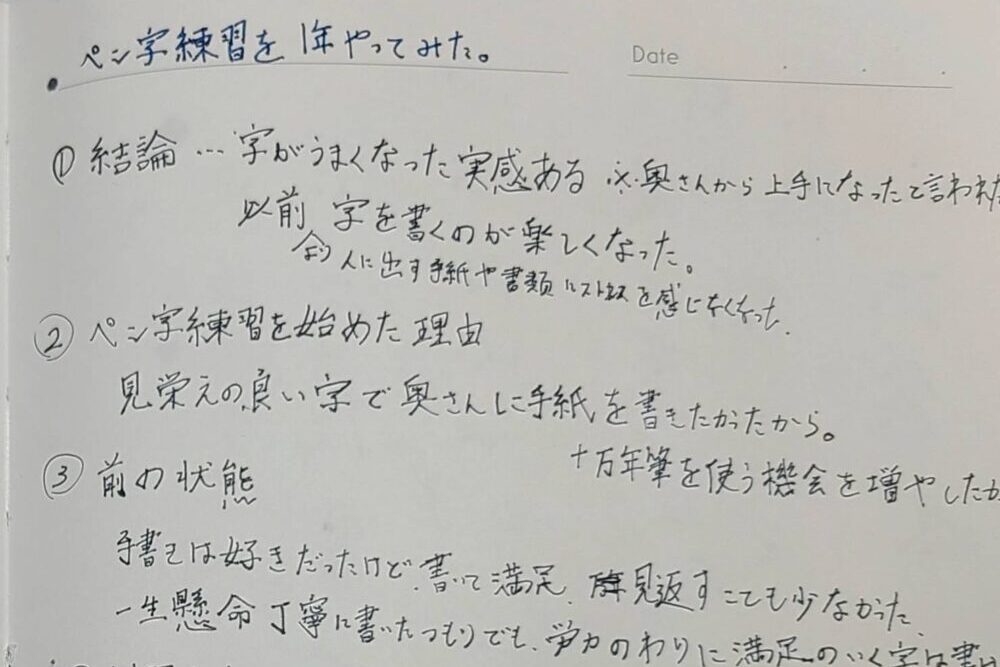 ペン字練習を1年やってみた。
Date
① 結論 … 字がうまくなった実感ある ※奥さんから上手になったと言われた
以前 字を書くのが楽しくなった。
より 人に出す手紙や書類にストレスを感じなくなった.
② ペン字練習を始めた理由
見栄えの良い字で奥さんに手紙を書きたかったから。
+万年筆を使う機会を増やしたか
③ 前の状態
手書きは好きだったけど、書いて満足、見返すことも少なかった
一生懸命丁寧に書いたつもりでも、労力のわりに満足のいく字は書け